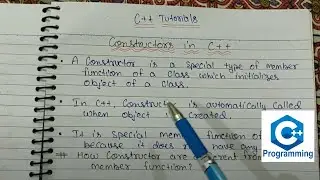 C++ Tutorials
Constructors in C++
• A Constructor is a special type of member
function of a class which initializes
object of a class.
• In C++, Constructor is automatically called
when object created.
• It is special member function of
because it does not have any
# How Constructor are different from
member function?
C++
Programming